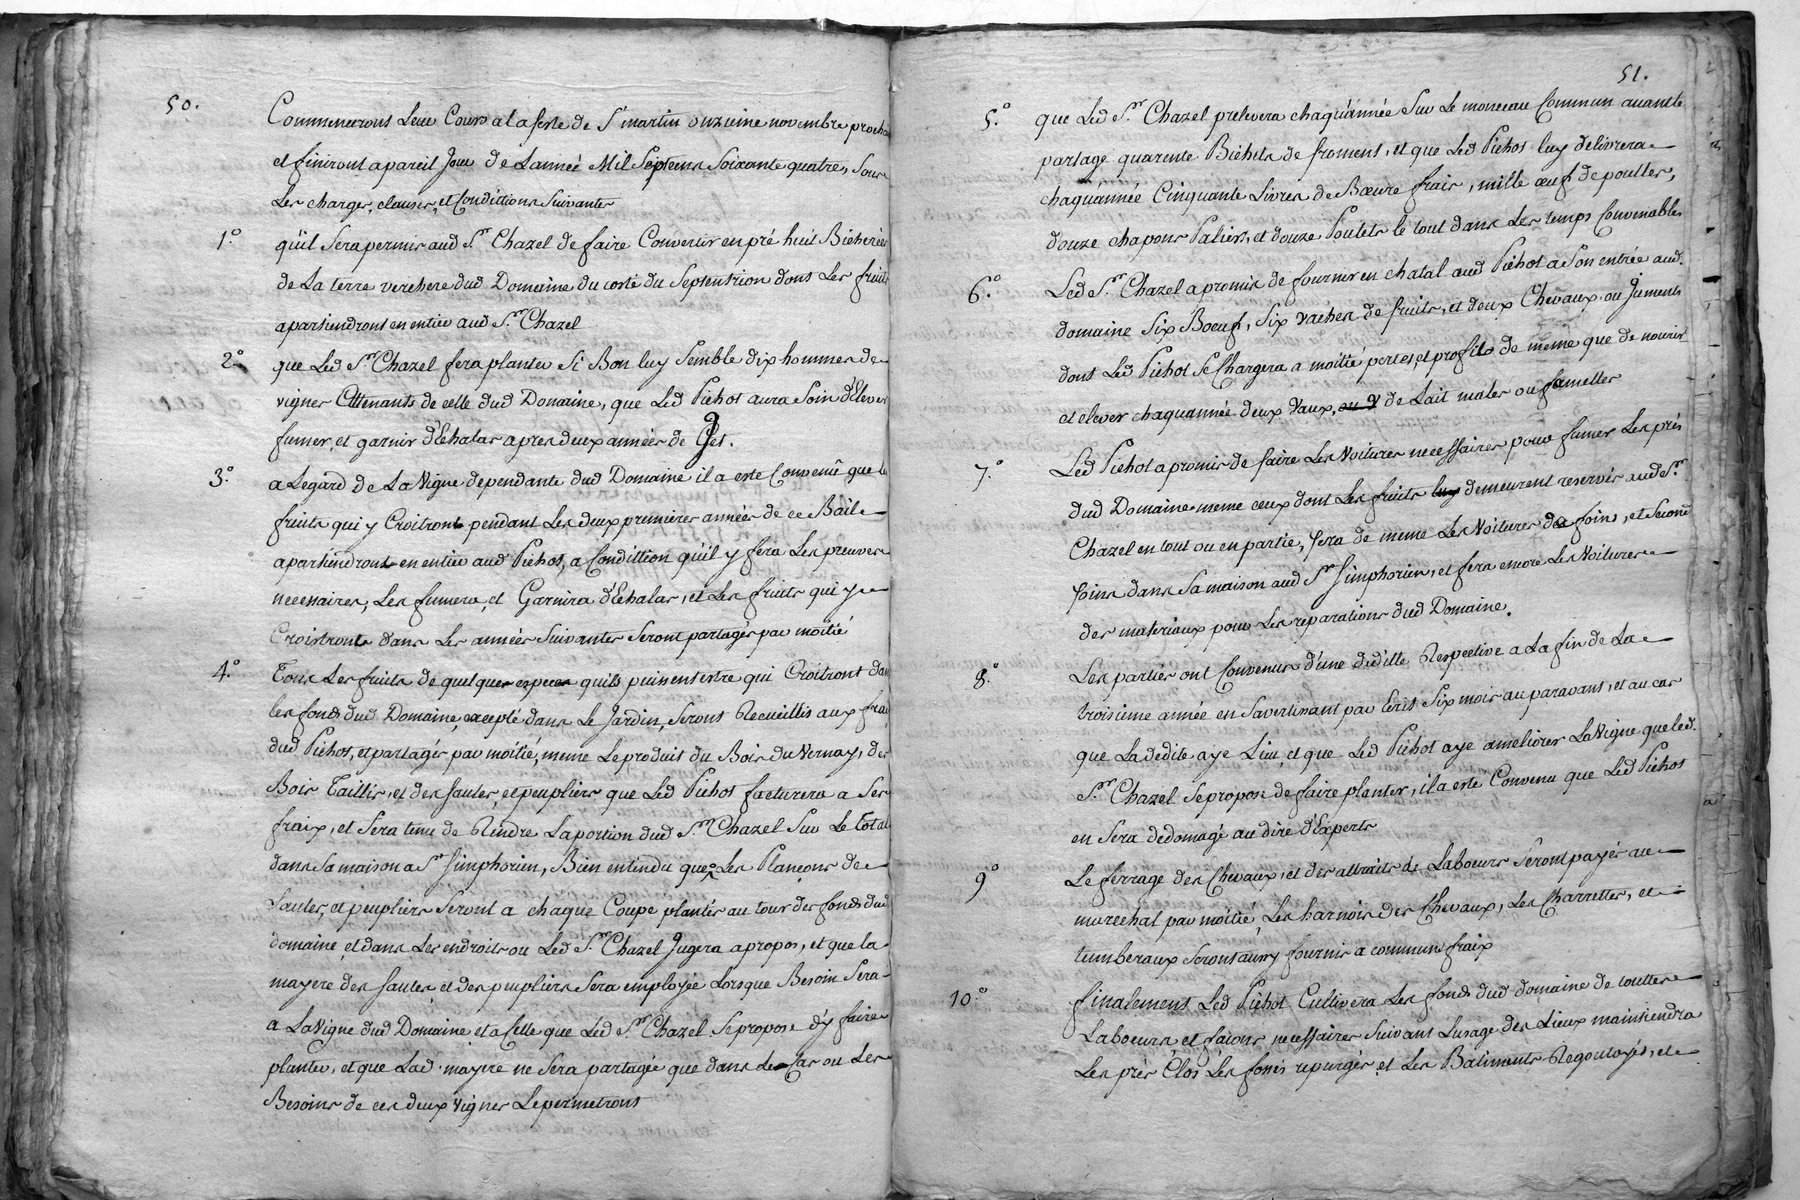 50.
Commenceront Leur Cours a la feste de St martin onzieme novembre prochain
et finiront a pareil Jour de Lanneé Mil Septcens Soixante quatre, Sous
Les charges, clauses, et Condittions Suivantes
1.° qu'il Sera permis aud Sr. Chazel de faire Convertir en pré huit Bicherées
de La terre verchere dud Domaine du costé du Septentrion dont Les fruits
apartiendront en entier aud Sr. Chazel
2.° que Led Sr Chazel fera planter Si Bon luy Semble dix hommes de
vignes Attenants de celle dud Domaine, que Led Pichot aura Soin d'Elever
fumer, et garnir d'Echalas apres deux années de Jet.
3.° a Legard de La Vigne dependante dud Domaine il a esté Convenû que les
fruits qui y Croitront pendant Les deux premieres années de ce Bail
apartiendront en entier aud Pichot, a Condittion qu'il y fera Les preuves
necessaires, Les fumera, et Garnira d'Echalas, et Les fruits qui y
Croistront dans Les années Suivantes Seront partagés par moitié
4.° Tous Les fruits de quelques especes quils puissent estre qui Croitront dans
les fonds dud Domaine, excepté dans Le Jardin, Seront Recueillis aux frais
dud Pichot, et partagés par moitié, meme Le produit du Bois du Vernay, des
Bois Taillis, et des saules, et peupliers que Led Pichot facturera a Ses
fraix, et Sera tenu de Rendre La portion dud Sr. Chazel Sur Le total
dans Sa maison a St Simphorien, Bien entendu que Les Plançons de
Saules, et peupliers Seront a chaque Coupe plantés au tour des fonds dud
domaine, et dans Les endroits ou Led Sr. Chazel Jugera apropos, et que la
mayere des saules, et des peupliers Sera employée Lorsque Besoin Sera
a La Vigne dud Domaine et a Celle que Led Sr. Chazel Se propose d'y faire
planter, et que Lad. mayere ne Sera partagée que dans le Cas ou Les
Besoins de ces deux vignes Le permetront
51.
5.° que Led Sr. Chazel prelevera chaqu'année Sur Le monceau Commun avant le
partage quarente Bichets de froment, et que Led Pichot luy delivrera
chaqu'année Cinquante Livres de Bœure frais, mille œufs de poulles,
douze chapons Paliers, et douze Poulets le tout dans Les temps Convenables
6.° Led Sr. Chazel a promis de fournir en chatal aud Pichot a Son entrée aud.
domaine Six Bœufs, Six vaches de fruits, et deux Chevaux ou Juments
dont Led Pichot Se Chargera a moitié pertes, et profits de meme que de nourir
et elever chaquannée deux Vaux, ou V de Lait males ou famelles
7.° Led Pichot a promis de faire Les Voitures necessaires pour fumer Les prés
dud Domaine meme ceux dont Les fruits luy demeurent reservés aud Sr.
Chazel en tout ou en partie, fera de meme Les Voitures des foins, et Second
foins dans Sa maison aud St Simphorien, et fera encore Les Voitures
des materiaux pour Les reparations dud Domaine.
8.° Les partiés ont Convenus d'une deditte Respective a La fin de La
troisieme année en S'avertissant par Ecrit Six mois au paravant, et au cas
que La dedite aye Lieu, et que Led Pichot aye ameliorer La Vigne que led.
Sr. Chazel Se propose de faire planter, il a esté Convenu que Led Pichot
en Sera dedomagé au dire d'Experts
9° Le ferrage des Chevaux, et des attraits de Laboeurs Seront payés au
marechal par moitié, Les harnois des Chevaux, Les Charrettes, et
tumberaux Seront aussy fournis a communs fraix
10.° finalement Led Pichot Cultivera Les fonds dud domaine de touttes
Laboeurs, et façons necessaires Suivant Lusage des Lieux maintiendra
Les prés Clos Les fossés repurgés et Les Batiments Regoutoyés, et